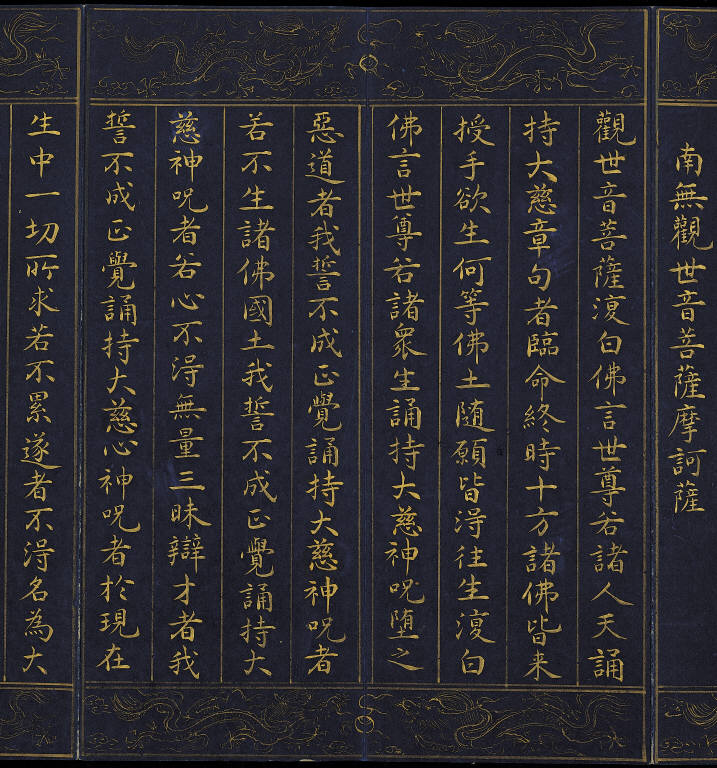 南無觀世音菩薩摩訶薩
觀世音菩薩復白佛言世尊若諸人天誦
持大慈章句者臨命終時十方諸佛皆来
授手欲生何等佛土随願皆淂往生復白
佛言世尊若諸眾生誦持大慈神呪堕之
惡道者我誓不成正覺誦持大慈神呪者
若不生諸佛國土我誓不成正覺誦持大
慈神呪者若心不淂無量三昧辯才者我
誓不成正覺誦持大慈心神呪者於現在
生中一切所求若不累遂者不淂名為大